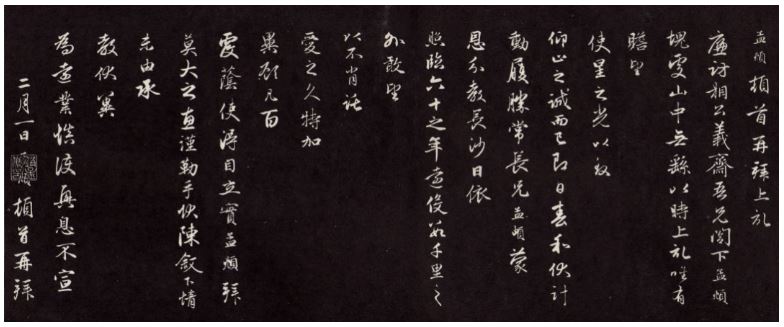 孟頫頓首再拜上札
廉訪相公義齋吾兄閣下孟頫
塊處山中無繇以時上札唯有
瞻望
使星之光以致
仰止之誠而已即日春和伏計
動履勝常長兄孟頫蒙
恩分教長沙日依
照臨六十之年遠役數千里之
外敢望
以不肖託
愛之久特加
異顧凡百
覆蔭使得自立實孟頫拜
莫大之惠謹勒手伏陳敘下情
未由承
教伏冀
為遠業慎護興息不宣
二月一日 頓首再拜